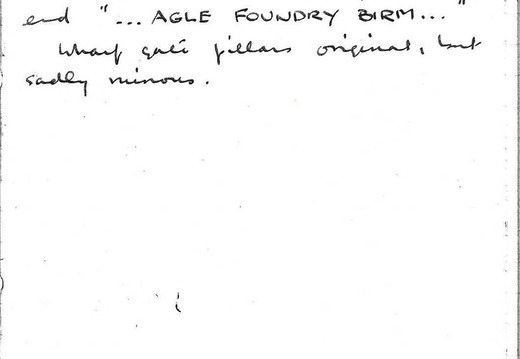 end "... AGLE FOUNDRY BIRM... "
Wharf gate pillars original, but
sadly ruinous.